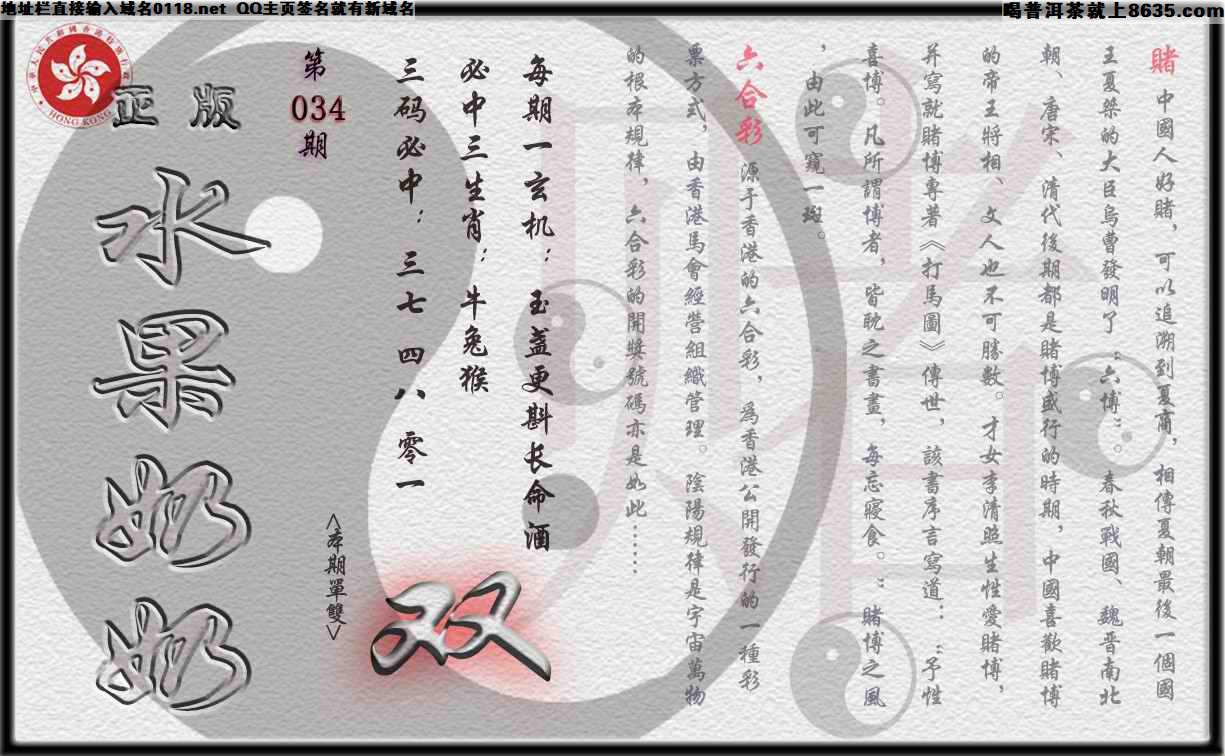 地址栏直接输入域名0118.net QQ主页签名就有新域名
喝普洱茶就上8635.com
賭 中國人好賭，可以追溯到夏商，相傳夏朝最後一個國
王夏桀的大臣烏曹發明了“六博”。春秋戰國、魏晋南北
朝、唐宋、清代後期都是賭博盛行的時期，中國喜歡賭博
的帝王將相、文人也不可勝數。才女李清照生性愛賭博，
并寫就賭博專著《打馬圖》傳世，該書序言寫道：“予性
喜博。凡所謂博者，皆耽之晝，每忘寢食。”賭博之風
，由此可窺一斑。
六合彩 源于香港的六合彩，爲香港公開發行的一種彩
票方式，由香港馬會經營組織管理。陰陽規律是宇宙萬物
的根本規律，六合彩的開獎號碼亦是如此……
每期一玄机：玉盏更斟长命酒
必中三生肖：牛兔猴
三码必中：三七 四八 零一
<本期單雙>
双
第
034
期
正版
水果奶奶
HONG KONG